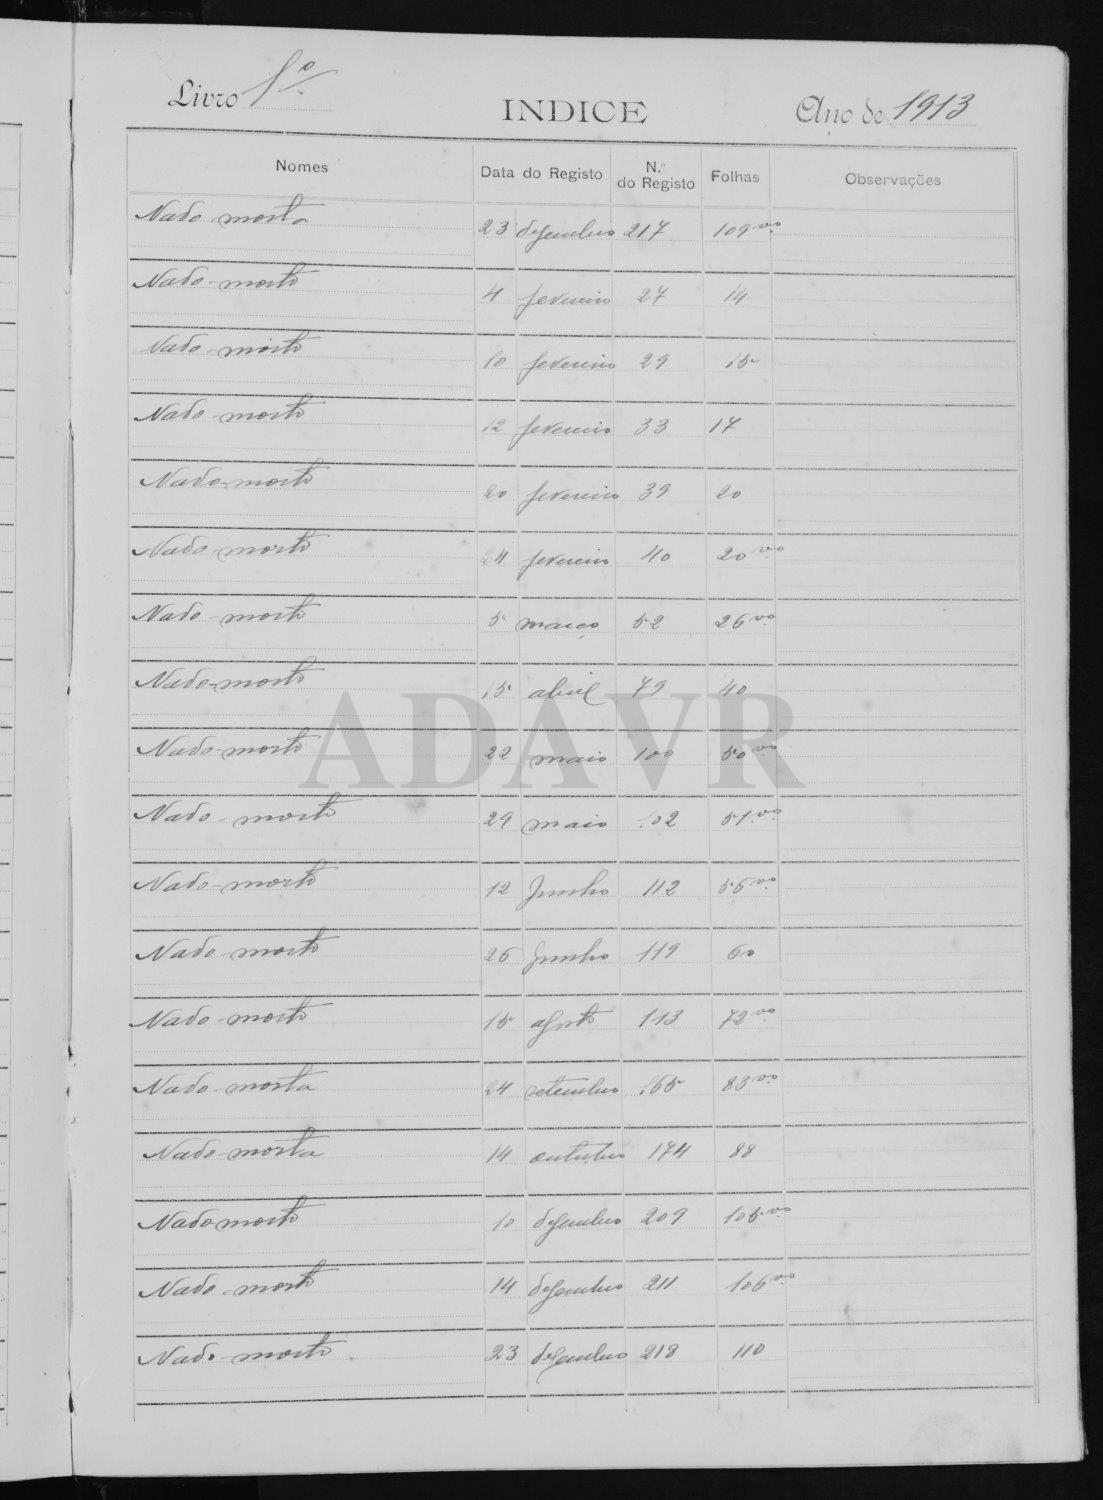 Livro 1º INDICE Ano de 1913
Nomes Data do Registo N.º do Registo Folhas Observações
Nado-morta 23 dezembro 217 109 vº
Nado-morto 4 fevereiro 27 14
Nado-morto 10 fevereiro 29 15
Nado-morto 12 fevereiro 33 17
Nado-morto 20 fevereiro 39 20
Nado-morto 24 fevereiro 40 20 vº
Nado-morto 5 março 52 26 vº
Nado-morto 15 abril 79 40
Nado-morto 22 maio 100 50 vº
Nado-morto 29 maio 102 51 vº
Nado-morto 12 Junho 112 56 vº
Nado-morto 26 Junho 119 60
Nado-morto 15 agosto 143 72 vº
Nado-morta 24 setembro 165 83 vº
Nado-morta 14 outubro 174 88
Nado morto 10 dezembro 209 105 vº
Nado-morto 14 dezembro 211 106 vº
Nado-morto 23 dezembro 218 110
ADAVR